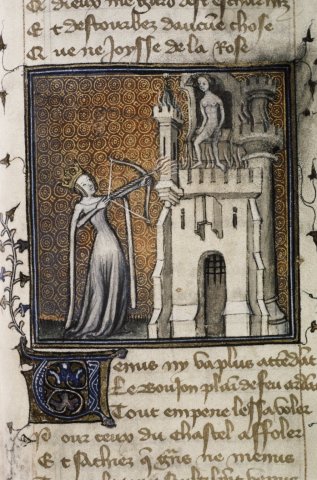 Et destourbez daucune chose
Que ne joysse de la Rose
Venus ny va plus attendāt
Le Boujon plaī de feu ardāt
Tout empene lessa voler
Pour ceux du chastel affoler
Et sachiez q̄ gn̄s ne menus